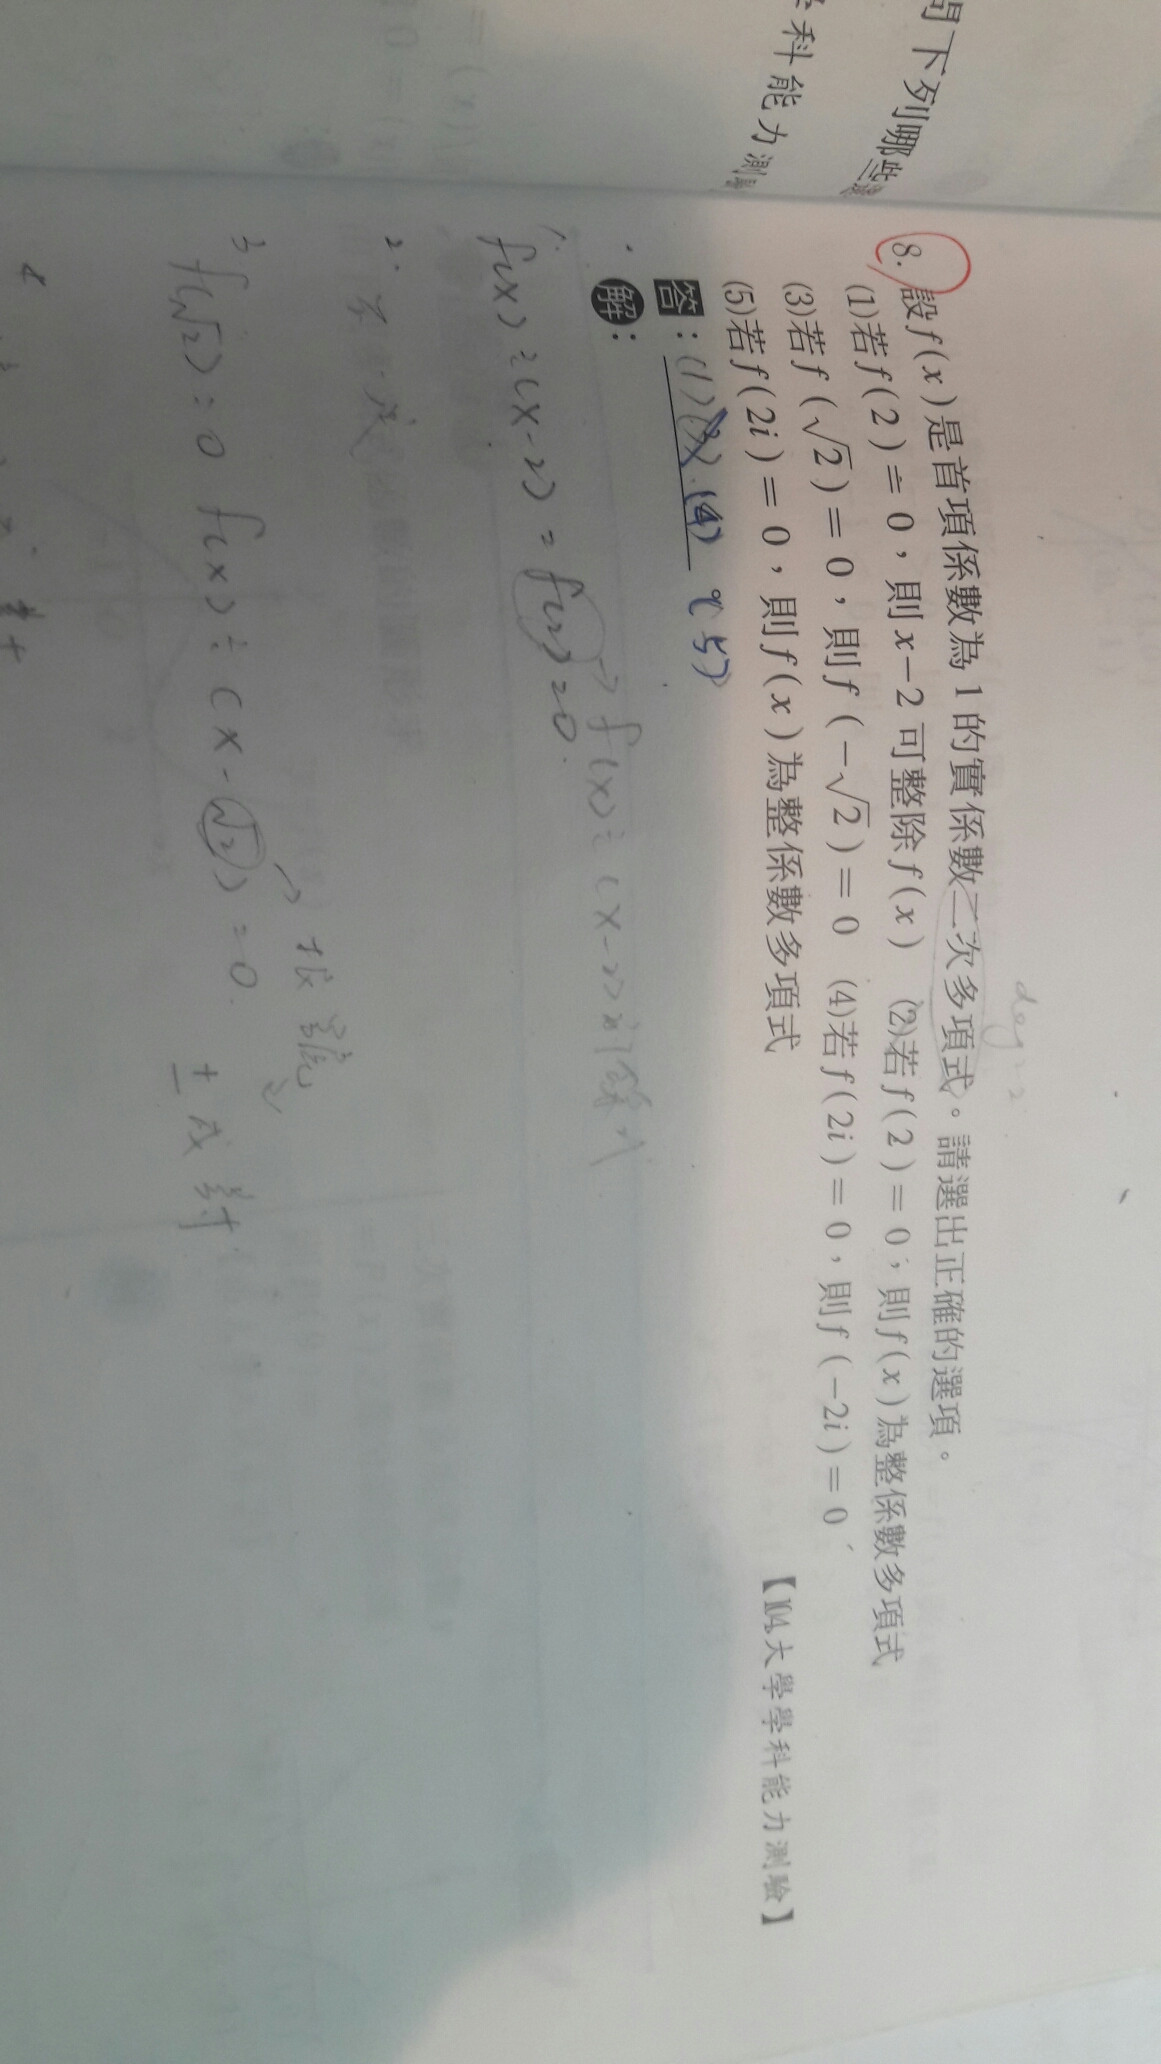 問下列哪些
學科能力測驗
8. 設f(x)是首項係數為1的實係數二次多項式。請選出正確的選項。
deg=2
(1)若f(2)=0，則x-2可整除f(x) (2)若f(2)=0，則f(x)為整係數多項式
(3)若f(√2)=0，則f(-√2)=0 (4)若f(2i)=0，則f(-2i)=0
(5)若f(2i)=0，則f(x)為整係數多項式
【104.大學學科能力測驗】
答：(1)(3)(4) (5)
解：
→f(x)÷(x-2)
1. f(x)÷(x-2)=f(2)=0.
2.
3 f(√2)=0 f(x)÷(x-√2)=0.
→根號
± 成對